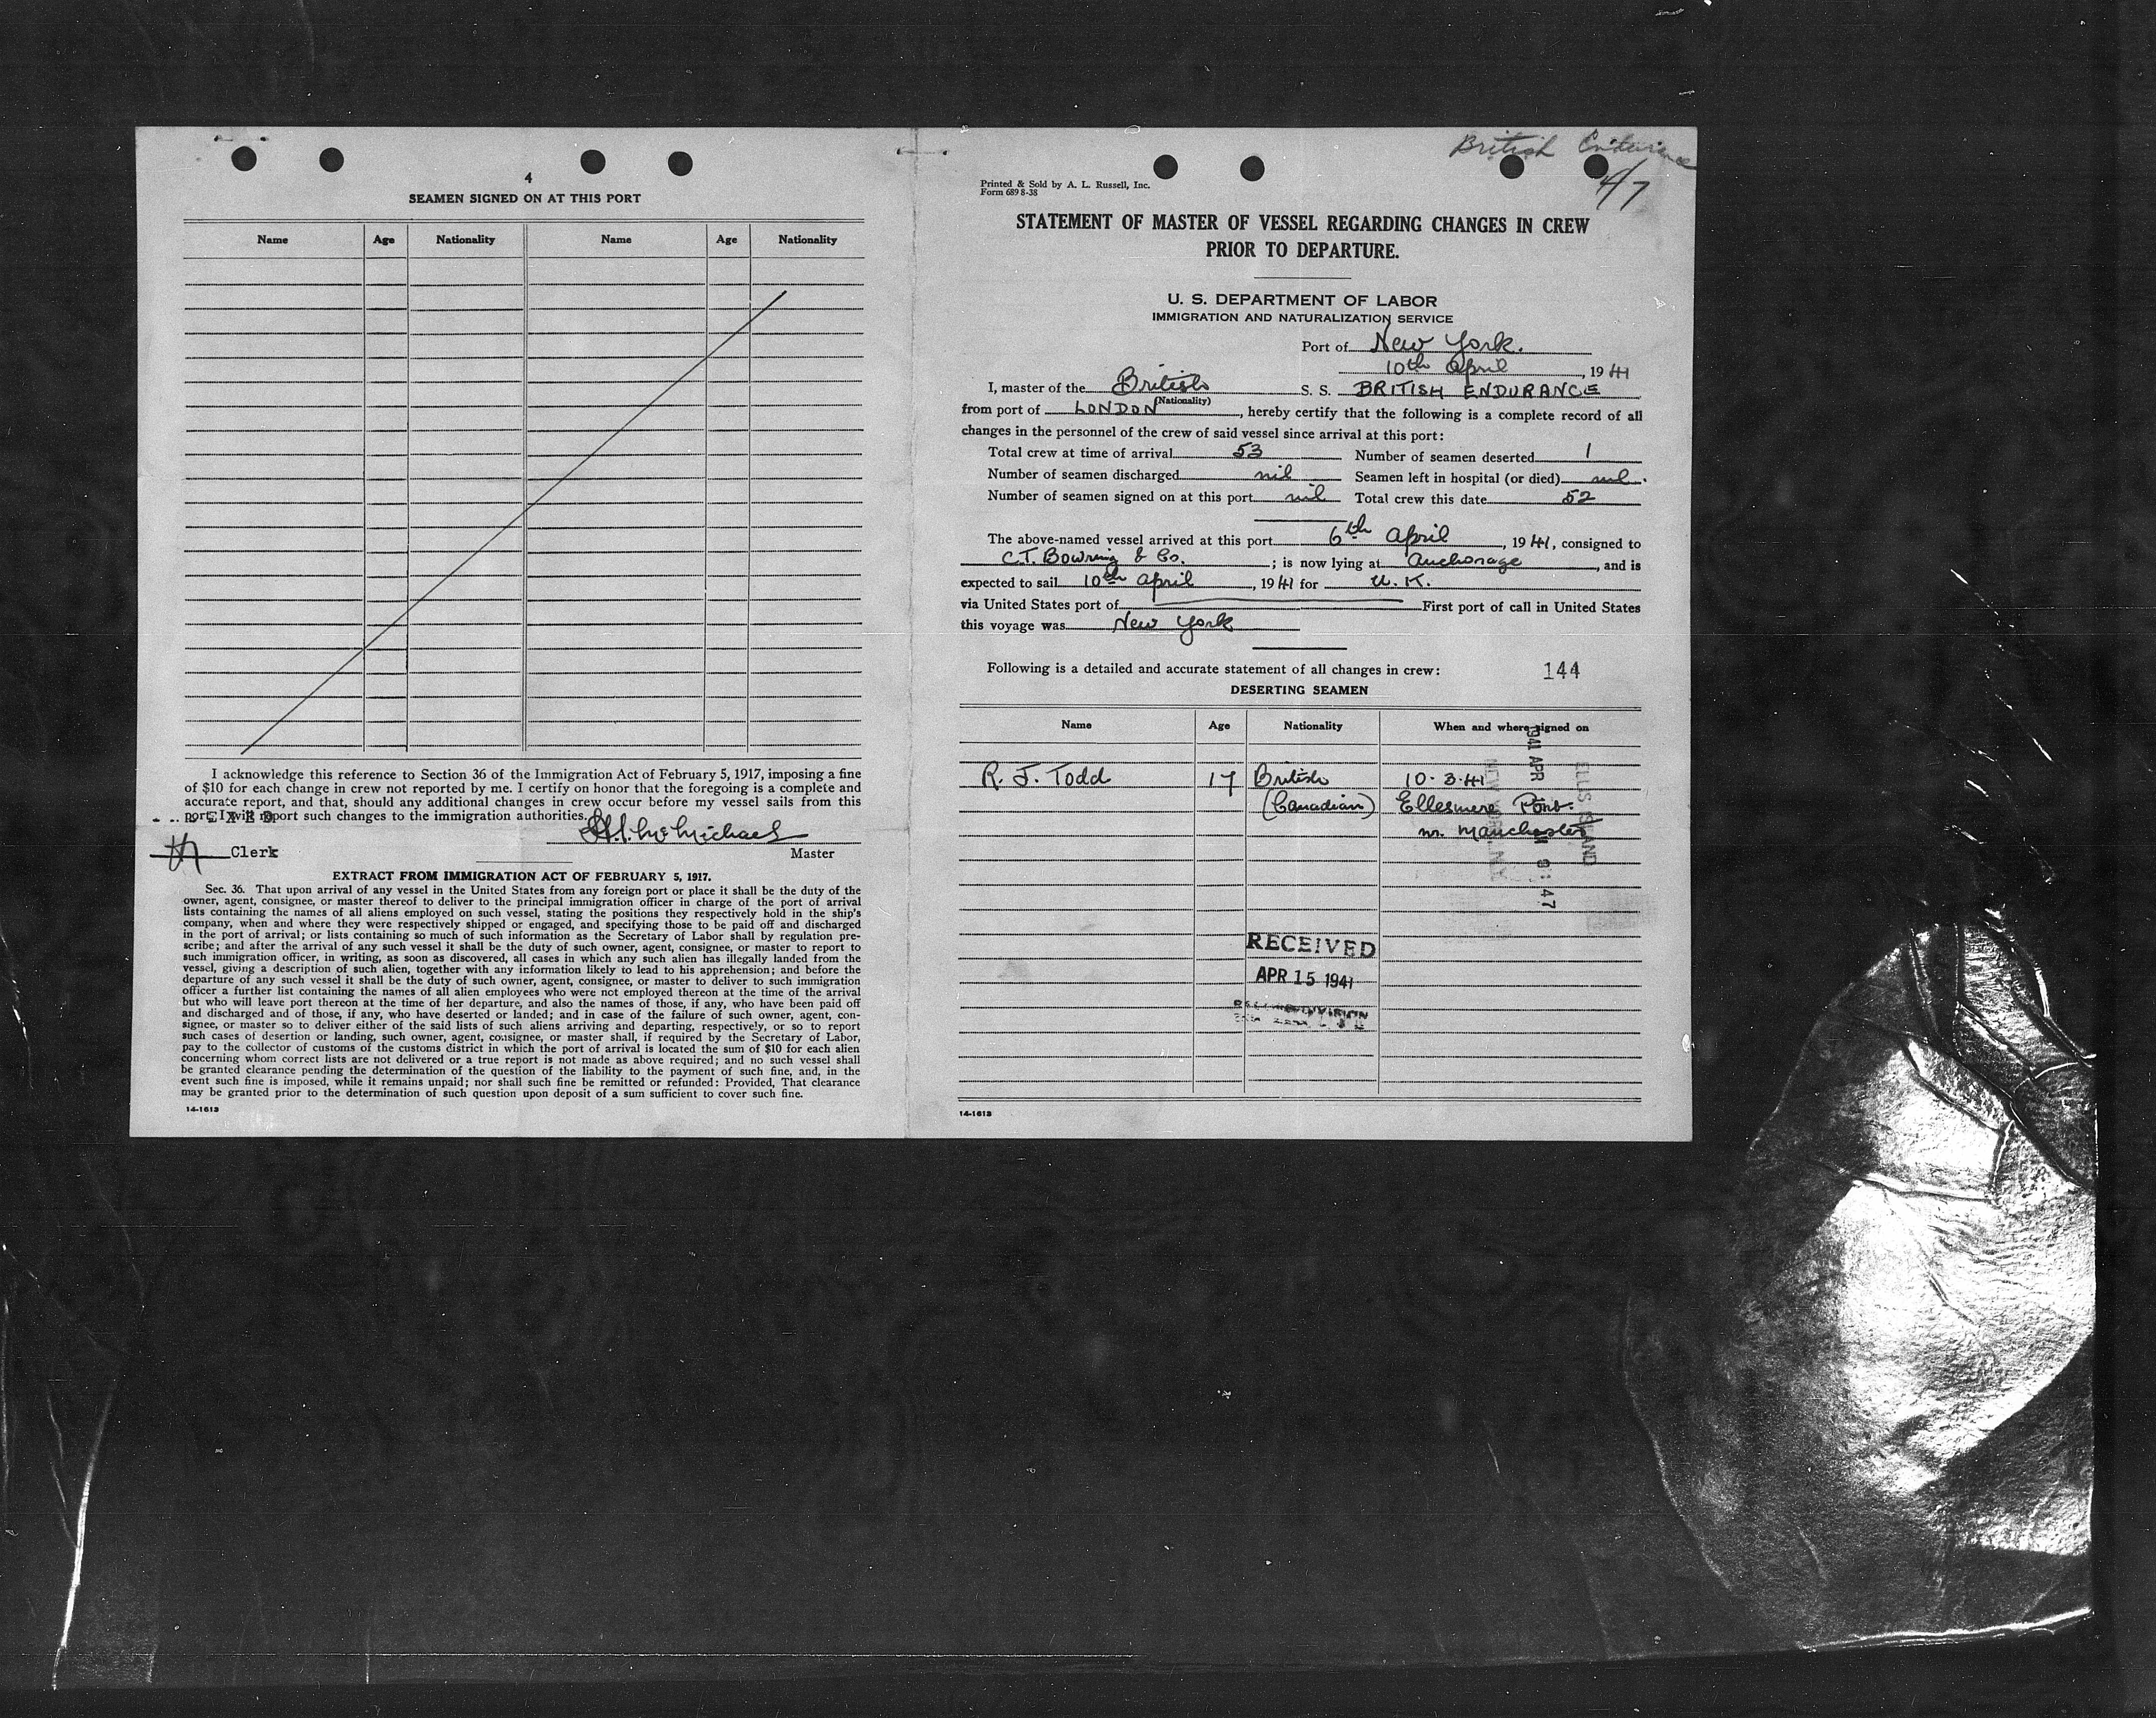 4
SEAMEN SIGNED ON AT THIS PORT
Name Age Nationality Name Age Nationality
I acknowledge this reference to Section 36 of the Immigration Act of February 5, 1917, imposing a fine
of $10 for each change in crew not reported by me. I certify on honor that the foregoing is a complete and
accurate report, and that, should any additional changes in crew occur before my vessel sails from this
port, I will report such changes to the immigration authorities.
McMichael
Clerk Master
EXTRACT FROM IMMIGRATION ACT OF FEBRUARY 5, 1917.
Sec. 36. That upon arrival of any vessel in the United States from any foreign port or place it shall be the duty of the
owner, agent, consignee, or master thereof to deliver to the principal immigration officer in charge of the port of arrival
lists containing the names of all aliens employed on such vessel, stating the positions they respectively hold in the ship's
company, when and where they were respectively shipped or engaged, and specifying those to be paid off and discharged
in the port of arrival; or lists containing so much of such information as the Secretary of Labor shall by regulation pre-
scribe; and after the arrival of any such vessel it shall be the duty of such owner, agent, consignee, or master to report to
such immigration officer, in writing, as soon as discovered, all cases in which any such alien has illegally landed from the
vessel, giving a description of such alien, together with any information likely to lead to his apprehension; and before the
departure of any such vessel it shall be the duty of such owner, agent, consignee, or master to deliver to such immigration
officer a further list containing the names of all alien employees who were not employed thereon at the time of the arrival
but who will leave port thereon at the time of her departure, and also the names of those, if any, who have been paid off
and discharged and of those, if any, who have deserted or landed; and in case of the failure of such owner, agent, con-
signee, or master so to deliver either of the said lists of such aliens arriving and departing, respectively, or so to report
such cases of desertion or landing, such owner, agent, consignee, or master shall, if required by the Secretary of Labor,
pay to the collector of customs of the customs district in which the port of arrival is located the sum of $10 for each alien
concerning whom correct lists are not delivered or a true report is not made as above required; and no such vessel shall
be granted clearance pending the determination of the question of the liability to the payment of such fine, and, in the
event such fine is imposed, while it remains unpaid; nor shall such fine be remitted or refunded: Provided, That clearance
may be granted prior to the determination of such question upon deposit of a sum sufficient to cover such fine.
14-1613
British Endurance
4/7
Printed & Sold by A. L. Russell, Inc.
Form 689 8-38
STATEMENT OF MASTER OF VESSEL REGARDING CHANGES IN CREW
PRIOR TO DEPARTURE.
U. S. DEPARTMENT OF LABOR
IMMIGRATION AND NATURALIZATION SERVICE
Port of New York.
10th April, 1941
I, master of the British S. S. BRITISH ENDURANCE
(Nationality)
from port of LONDON, hereby certify that the following is a complete record of all
changes in the personnel of the crew of said vessel since arrival at this port:
Total crew at time of arrival 53 Number of seamen deserted 1
Number of seamen discharged nil Seamen left in hospital (or died) nil.
Number of seamen signed on at this port nil Total crew this date 52
The above-named vessel arrived at this port 6th April, 1941, consigned to
C.T. Bowring & Co.; is now lying at Anchorage, and is
expected to sail 10th April, 1941 for U.K.
via United States port of First port of call in United States
this voyage was New York
Following is a detailed and accurate statement of all changes in crew: 144
DESERTING SEAMEN
Name Age Nationality When and where signed on
R. J. Todd 17 British 10.3.41
(Canadian) Ellesmere Port.
nr. Manchester
ELLIS ISLAND
RECEIVED
APR 15 1941
DIVISION
14-1613